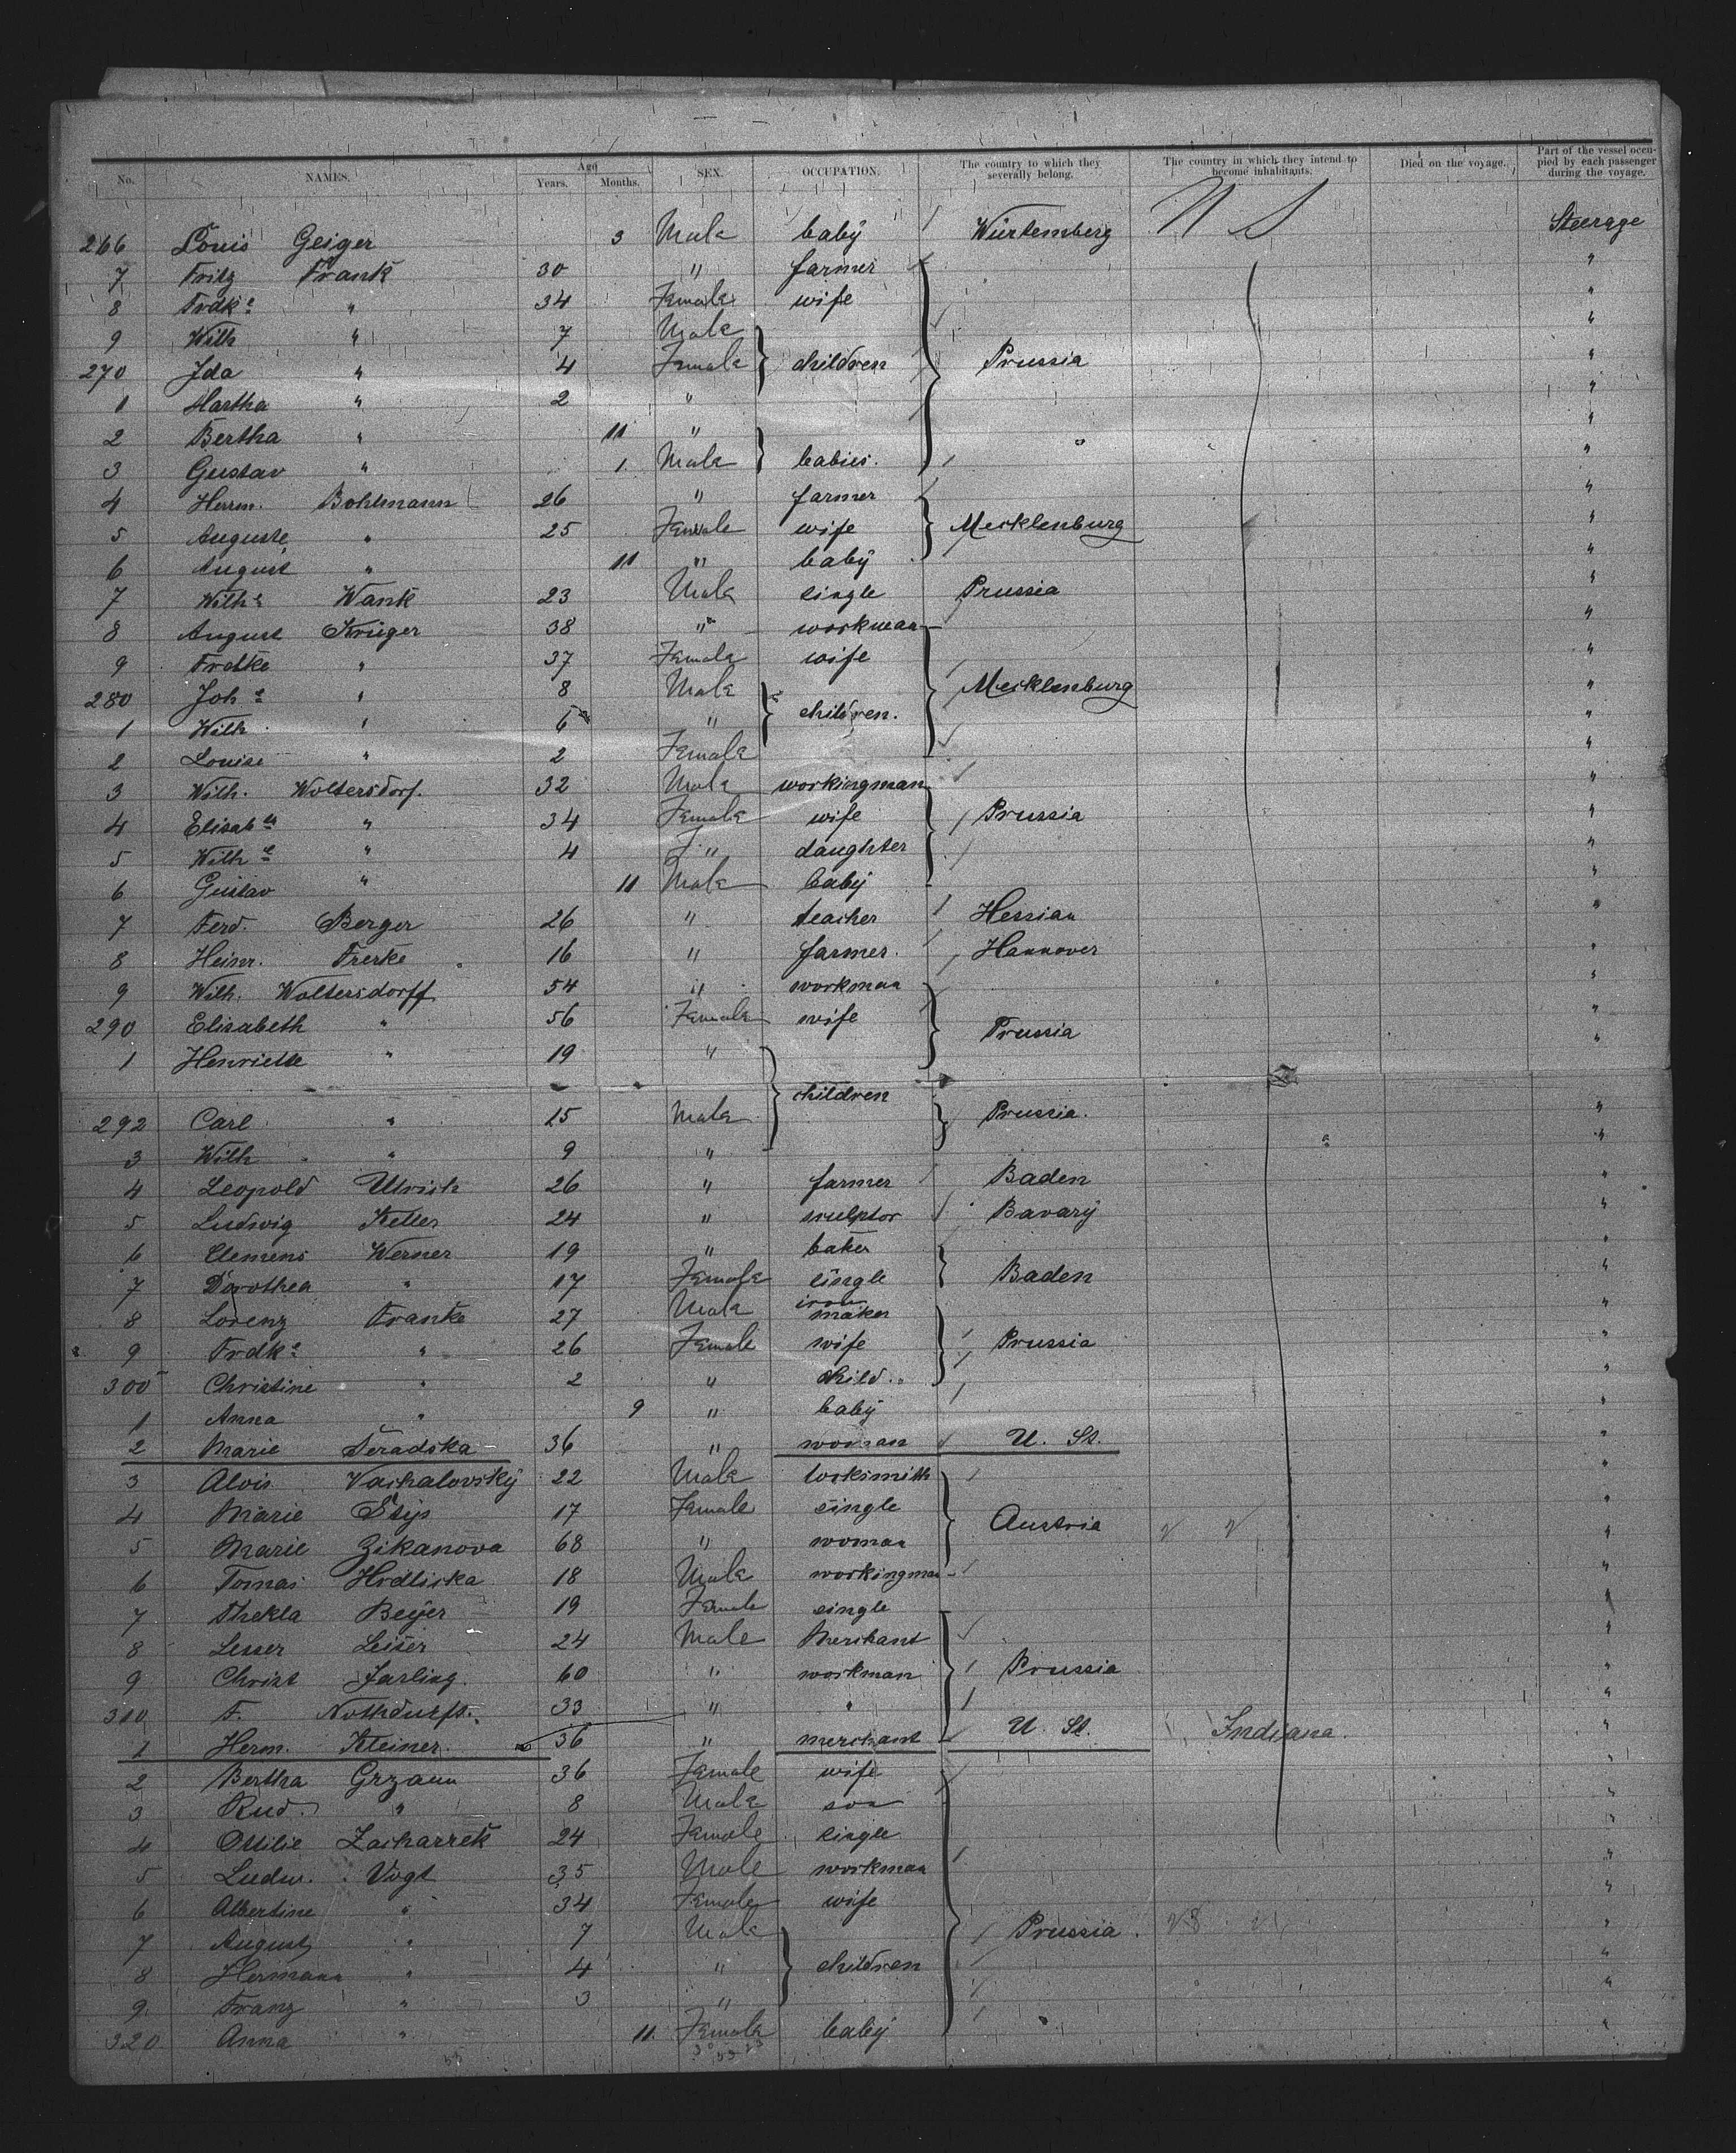 No. NAMES. Age Years. Months. SEX. OCCUPATION. The country to which they severally belong. The country in which they intend to become inhabitants. Died on the voyage. Part of the vessel occupied by each passenger during the voyage.
266 Louis Geiger 3 Male baby Würtemberg U S Steerage
7 Fritz Frank 30 " farmer "
8 Frdke " 34 Female wife "
9 Wilh " 7 Male "
270 Ida " 4 Female children Prussia "
1 Martha " 2 " "
2 Bertha " 11 " "
3 Gustav " 1 Male babies. "
4 Herrm. Bohlmann 26 " farmer "
5 Auguste " 25 Female wife Mecklenburg "
6 August " 11 " baby "
7 Wilhe Wank 23 Male single Prussia "
8 August Krüger 38 " workman "
9 Frdke " 37 Female wife "
280 Johe " 8 Male Mecklenburg "
1 Wilh " 6 " children. "
2 Louise " 2 Female "
3 Wilh. Woltersdorf. 32 Male workingman "
4 Elisabth " 34 Female wife Prussia "
5 Wilhe " 4 " daughter "
6 Gustav " 11 Male baby "
7 Ferd. Berger 26 " teacher Hessian "
8 Heinr. Frerke 16 " farmer. Hannover "
9 Wilh. Woltersdorff 54 " workman "
290 Elisabeth " 56 Female wife Prussia "
1 Henriette " 19 " "
children
292 Carl " 15 Male Prussia. "
3 Wilh " 9 " "
4 Leopold Ulrich 26 " farmer Baden "
5 Ludwig Keller 24 " sculptor Bavary "
6 Clemens Werner 19 " baker "
7 Dorothea " 17 Female single Baden "
8 Lorenz Franke 27 Male iron maker "
9 Frdke " 26 Female wife Prussia "
300 Christine " 2 " child "
1 Anna " 9 " baby "
2 Marie 36 " woman U. St. "
3 Alois Vachalovsky 22 Male locksmith "
4 Marie 17 Female single Austria "
5 Marie Zikanova 68 " woman "
6 Tomas Hrdlicka 18 Male workingman "
7 Thekla Beyer 19 Female single "
8 Lesser Leiser 24 Male Merchant "
9 Christ Jarling. 60 " workman Prussia "
310 F. Nothdurft. 33 " " "
1 Herm. Kleiner. 36 " merchant U. St. Indiana. "
2 Bertha Grzann 36 Female wife "
3 Rud. " 8 Male son "
4 Ottilie Zacharrek 24 Female single "
5 Ludw. Vogt 35 Male workman "
6 Albertine " 34 Female wife "
7 August " 7 Male Prussia. "
8 Hermann " 4 " children "
9 Franz " 3 " "
320 Anna " 11 Female baby "